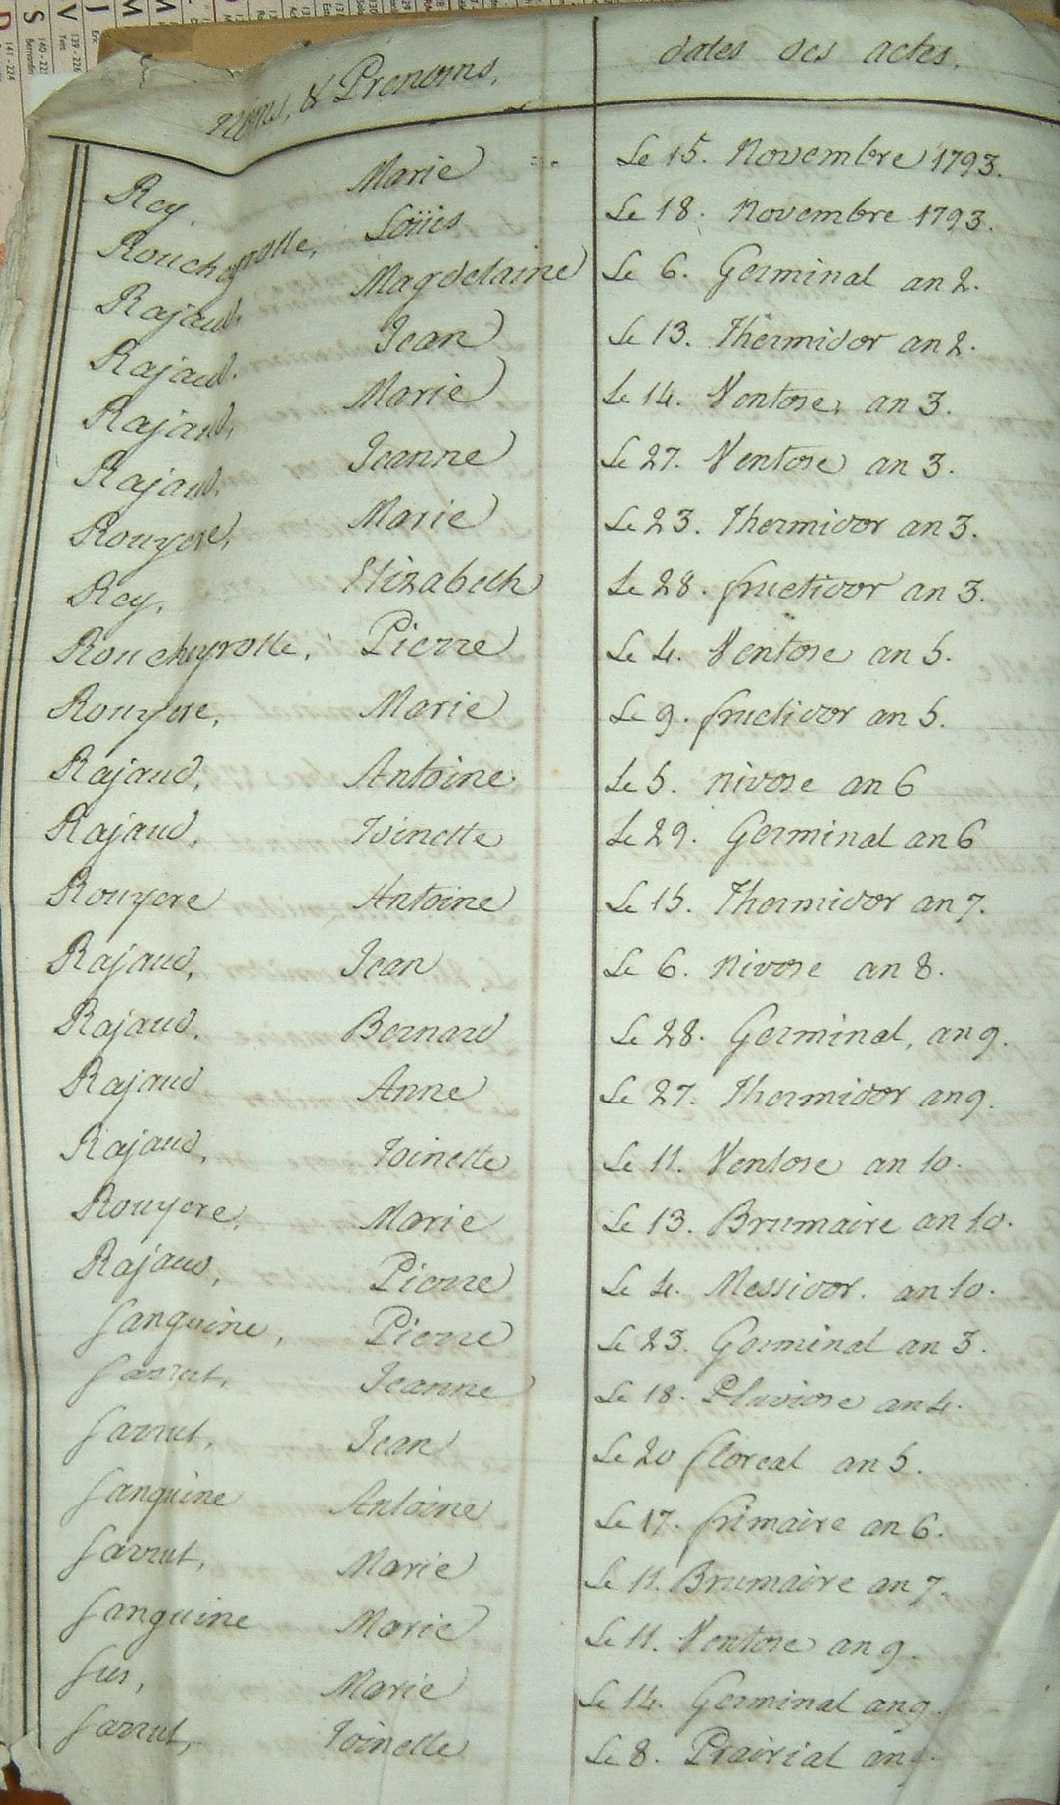 noms, & Prenoms, dates des actes,
Rey, Marie Le 15. Novembre 1793.
Roucheyrolle, Loüis Le 18. Novembre 1793.
Rajaud, Magdelaine Le 6. Germinal an 2.
Rajaud. Jean Le 13. Thermidor an 2.
Rajaud, Marie Le 14. Ventose, an 3.
Rajaud, Jeanne Le 27. Ventose an 3.
Rouyere, Marie Le 23. Thermidor an 3.
Rey, Elizabeth Le 28. fructidor an 3.
Roucheyrolle, Pierre Le 4. Ventose an 5.
Rouyere, Marie Le 9. fructidor an 5.
Rajaud, Antoine Le 5. nivose an 6
Rajaud, Toinette Le 29. Germinal an 6
Rouyere Antoine Le 15. Thermidor an 7.
Rajaud, Jean Le 6. Nivose an 8.
Rajaud, Bernard Le 28. Germinal, an 9.
Rajaud Anne Le 27. Thermidor an 9.
Rajaud, Toinette Le 11. Ventose an 10.
Rouyere, Marie Le 13. Brumaire an 10.
Rajaud, Pierre Le 4. Messidor. an 10.
Sanguine, Pierre Le 23. Germinal an 3.
Sarrut, Jeanne Le 18. Pluviose an 4.
Sarrut, Jean Le 20 floreal an 5.
Sanguine Antoine Le 17. frimaire an 6.
Sarrut, Marie Le 11. Brumaire an 7.
Sanguine Marie Le 11. Ventose an 9.
Sus, Marie Le 14. Germinal an 9.
Sarrut, Toinette Le 8. Prairial an 9.